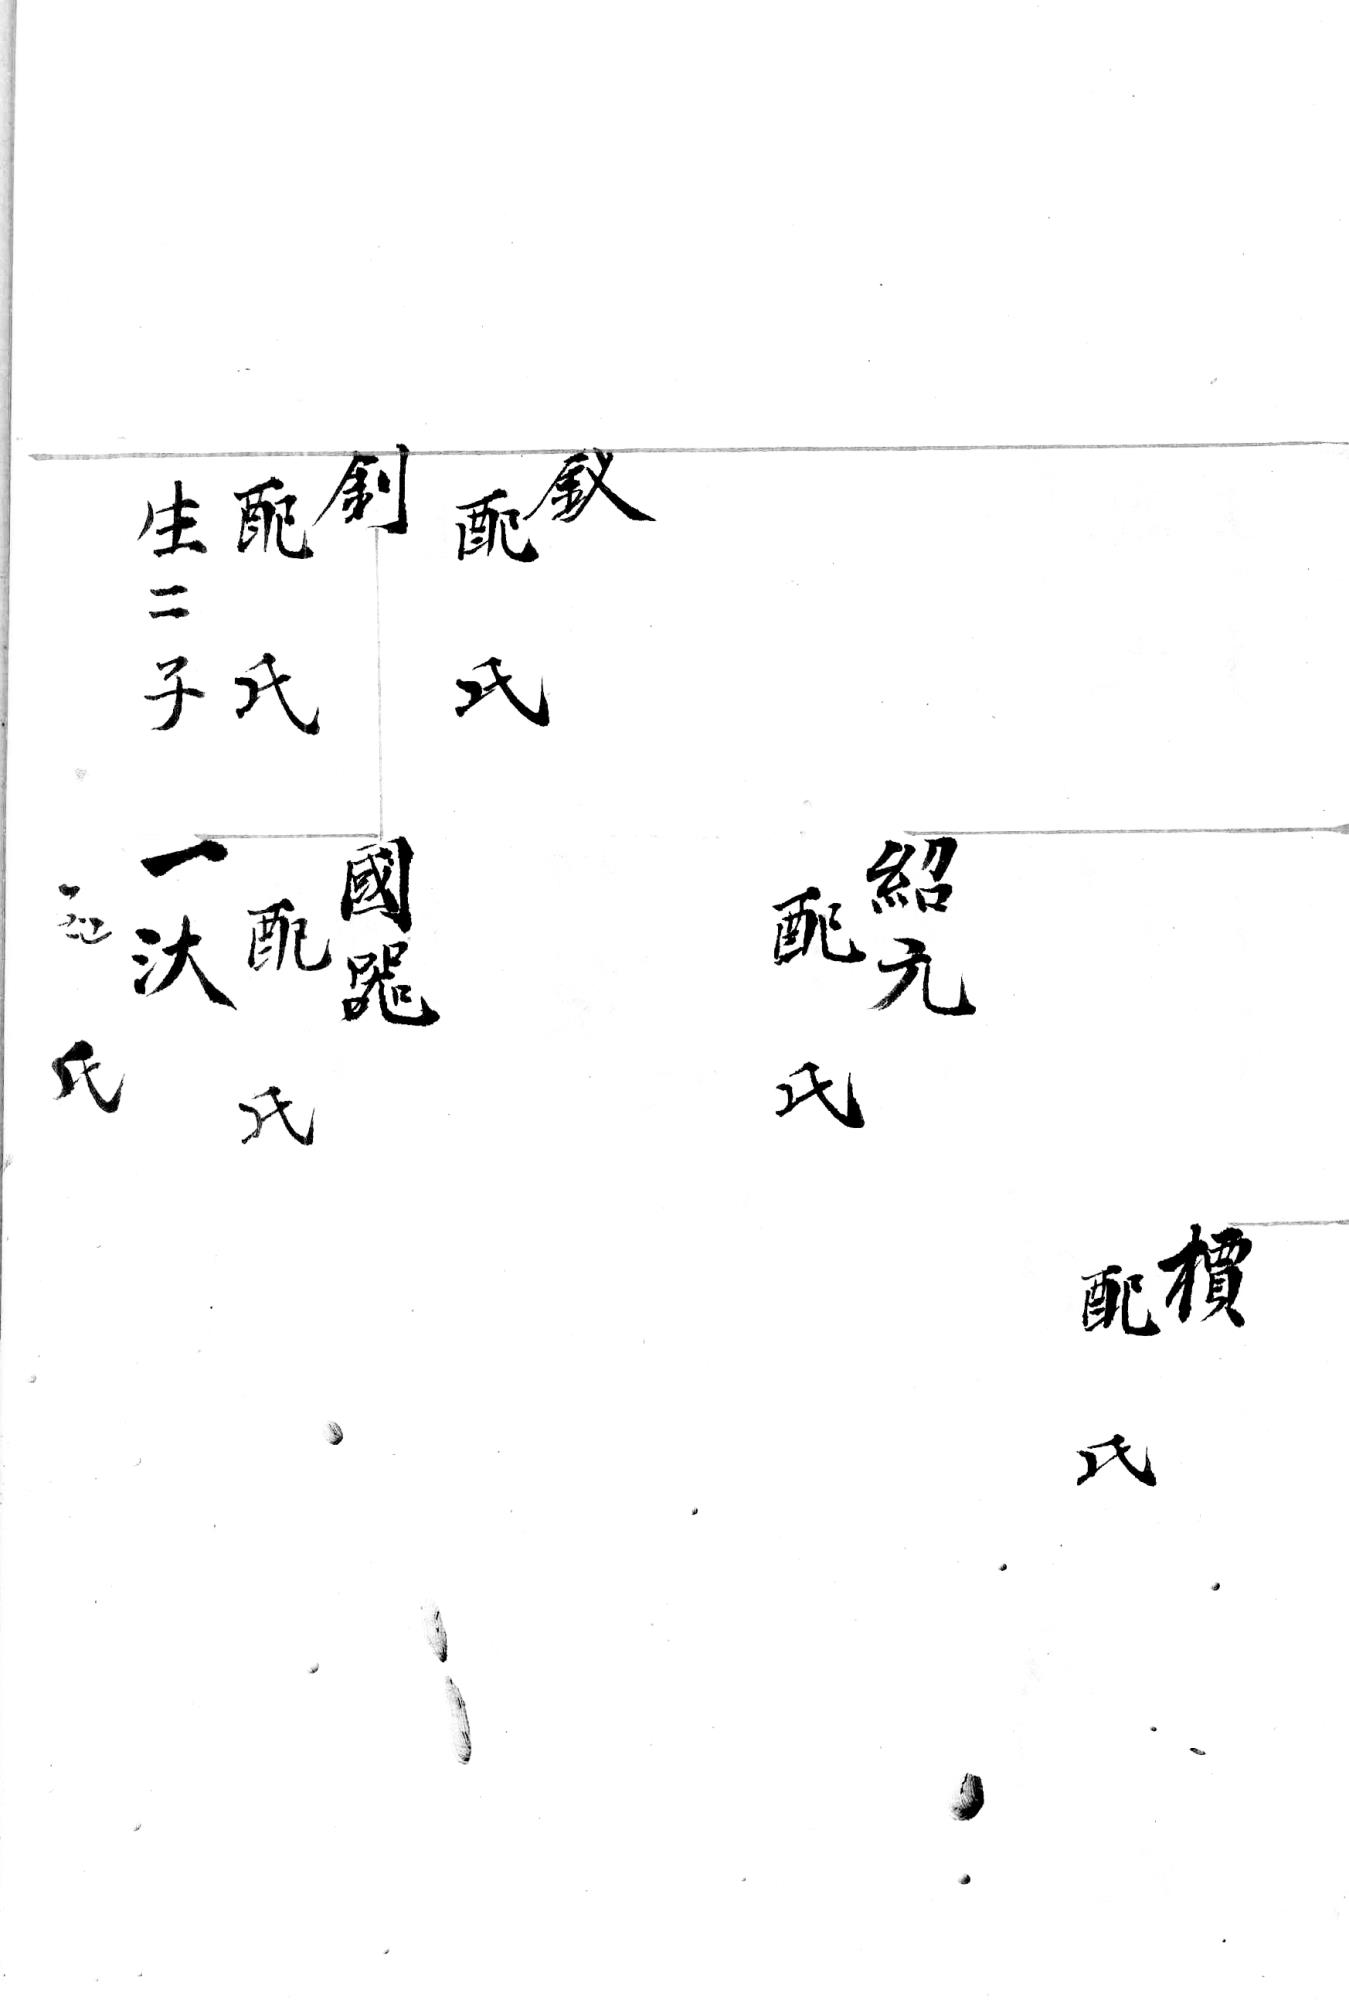 檟
配 氏
紹元
配 氏
釵
配 氏
釗
配 氏
生二子
國器
配 氏
一汏
氏